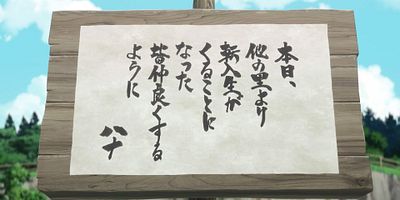 本日、
他の里より
新入生が
くることに
なった
皆仲良くする
ように
八十